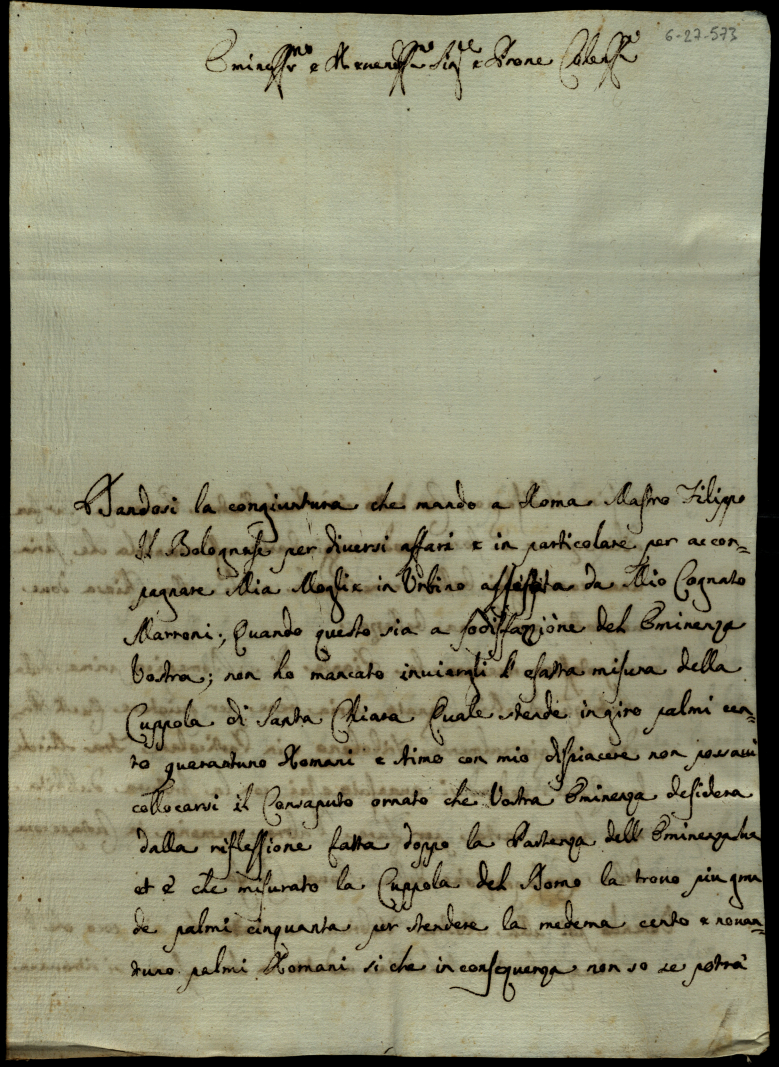 6-27-573
Eminessmo e Reverendssmo Sigre e Prone Colenssmo
Dandosi la congiuntura che mando a Roma Mastro Filippo
Il Bolognese per diversi affari e in particolare per accon=
pagnare Mia Moglie in Urbino assistita da Mio Cognato
Marroni; Quando questo sia a sodisfazione del Eminenza
Vostra; non ho mancato inviargli l'esatta misura della
Cuppola di Santa Chiara Quale stende in giro palmi cen=
to quarantuno Romani e stimo con mio dispiacere non possavi
collocarsi il Consaputo ornato che Vostra Eminenza desidera
dalla riflessione fatta doppo la Partenza dell'Eminenza sua
et è che misurato la Cuppola del Domo la trovo piu gran
de palmi cinquanta per stendere la medema cento e novan=
tuno palmi Romani si che in consequenza non so se potrà